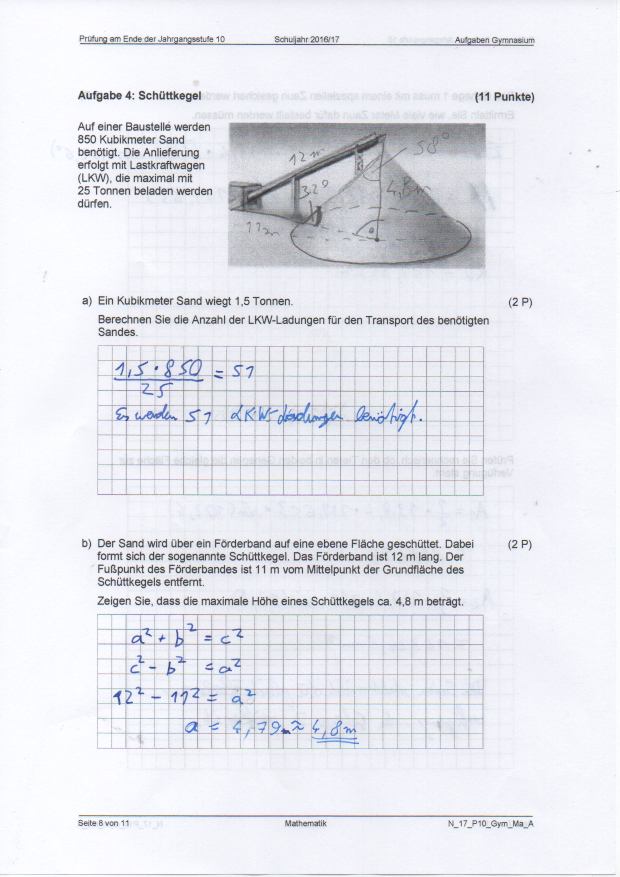 Prüfung am Ende der Jahrgangsstufe 10 Schuljahr 2016/17 Aufgaben Gymnasium
Aufgabe 4: Schüttkegel (11 Punkte)
Auf einer Baustelle werden
850 Kubikmeter Sand
benötigt. Die Anlieferung
erfolgt mit Lastkraftwagen
(LKW), die maximal mit
25 Tonnen beladen werden
dürfen.
12 m
58°
32°
4,8m
11m
a) Ein Kubikmeter Sand wiegt 1,5 Tonnen. (2 P)
Berechnen Sie die Anzahl der LKW-Ladungen für den Transport des benötigten
Sandes.
1,5 · 850 = 51
25
Es werden 51 LKW-Ladungen benötigt.
b) Der Sand wird über ein Förderband auf eine ebene Fläche geschüttet. Dabei (2 P)
formt sich der sogenannte Schüttkegel. Das Förderband ist 12 m lang. Der
Fußpunkt des Förderbandes ist 11 m vom Mittelpunkt der Grundfläche des
Schüttkegels entfernt.
Zeigen Sie, dass die maximale Höhe eines Schüttkegels ca. 4,8 m beträgt.
a² + b² = c²
c² - b² = a²
12² - 11² = a²
a = 4,79m ≈ 4,8m
Seite 8 von 11 Mathematik N_17_P10_Gym_Ma_A